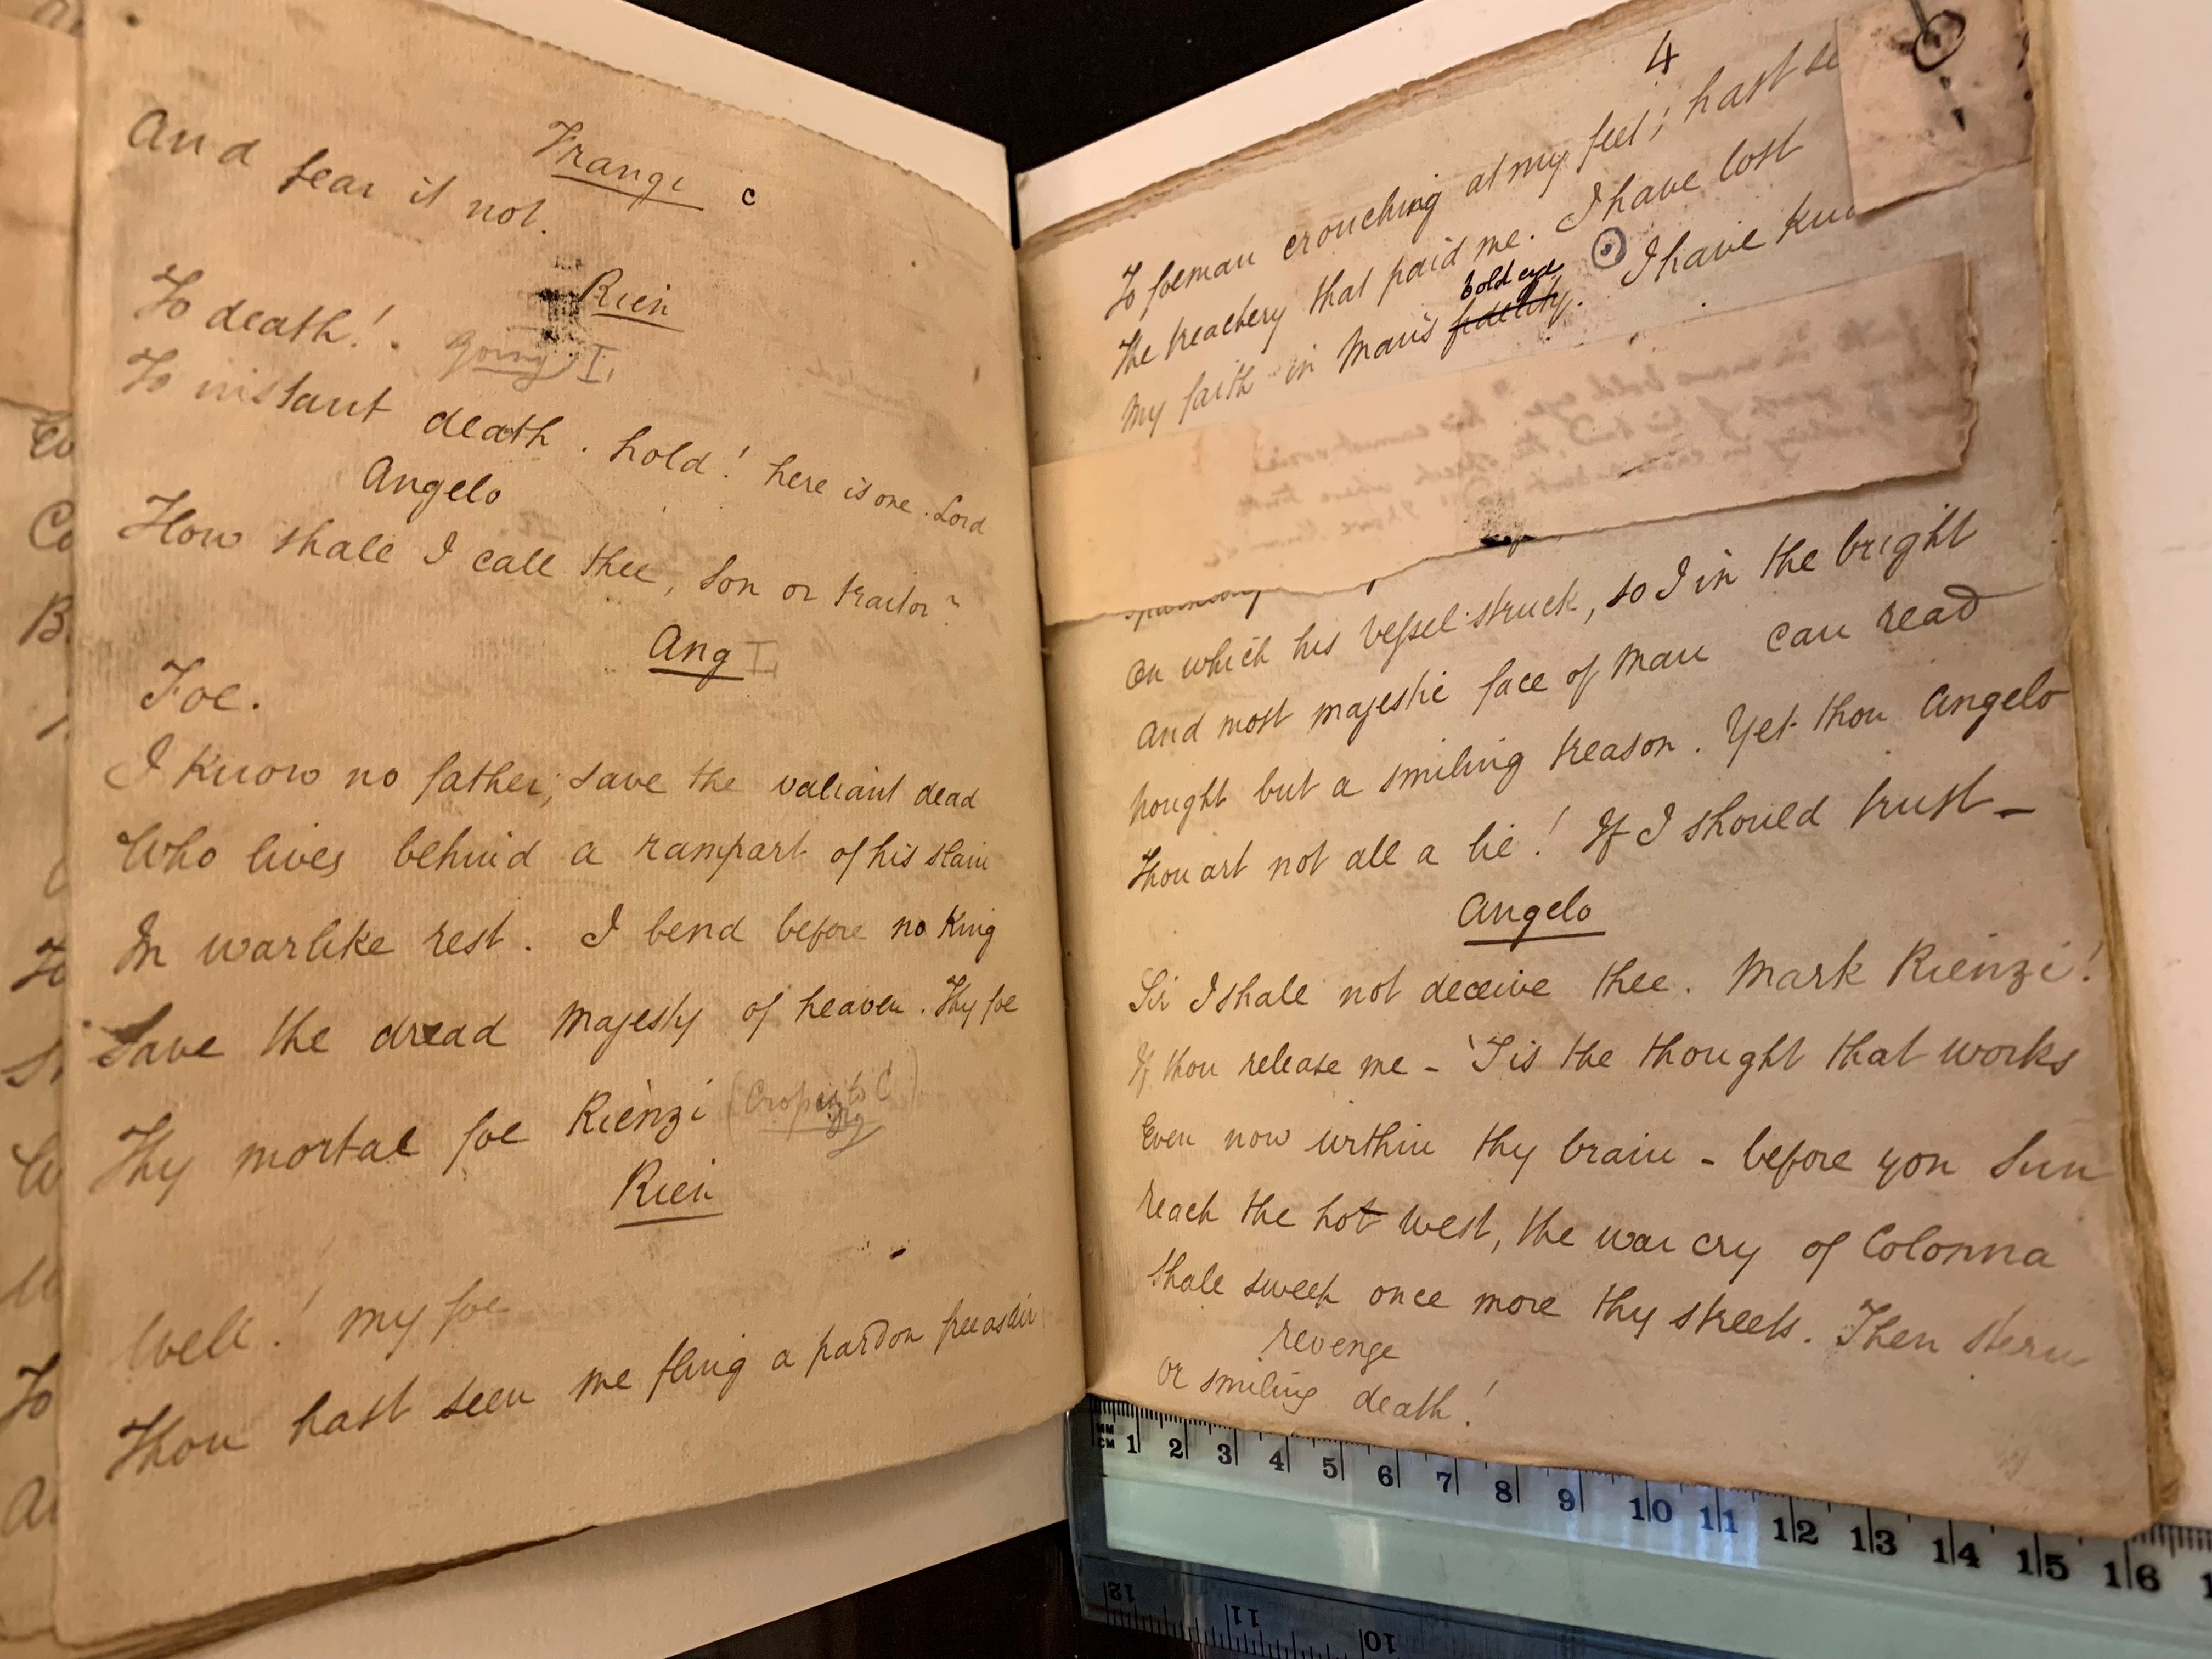 Frangi c
And fear it not.
Rien
To death! . Going I,
To instant death . hold! here is one . Lord
Angelo
How shall I call thee, Son or traitor?
Ang I,
Foe.
I know no father, save the valiant dead
Who lives behind a rampart of his slain
In warlike rest . I bend before no King
Save the dread Majesty of heaven . Thy foe
Thy mortal foe Rienzi
Rien
Well! my foe
Thou hast seen me fling a pardon free as air
4
To foeman crouching at my feet; hast se
The treachery that paid me. I have lost
bold eye
My faith in Man's fidelity. I have kn
On which his Vessel struck, so I in the bright
And most majestic face of Man can read
Nought but a smiling treason. Yet thou Angelo
Thou art not all a lie! If I should trust —
Angelo
Sir I shall not deceive thee. Mark Rienzi!
If thou release me - 'Tis the thought that works
Even now within thy brain - before yon Sun
Reach the hot West, the war cry of Colonna
Shall sweep once more thy streets. Then stern
revenge
Or smiling death!
MM
CM 1 2 3 4 5 6 7 8 9 10 11 12 13 14 15 16
12 11 10